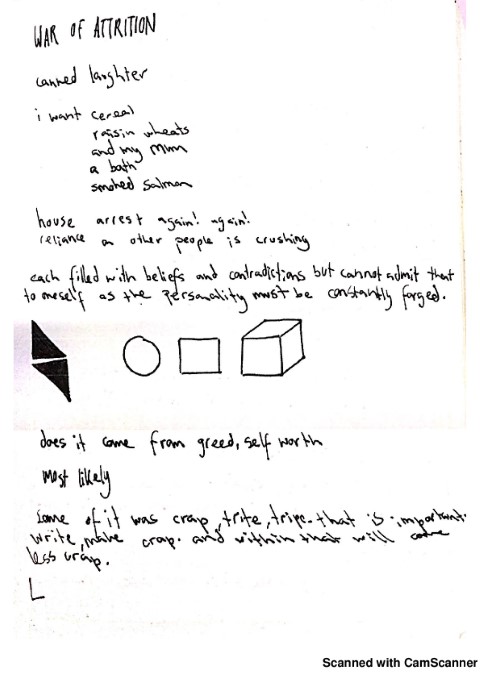 WAR OF ATTRITION
canned laughter
i want cereal
raisin wheats
and my mum
a bath
smoked salmon
house arrest again! again!
reliance on other people is crushing
each filled with beliefs and contradictions but cannot admit that
to meself as the personality must be constantly forged.
does it come from greed, self worth
most likely
some of it was crap, trite, tripe. that is important.
write, make crap. and within that will come
less crap.
L
Scanned with CamScanner